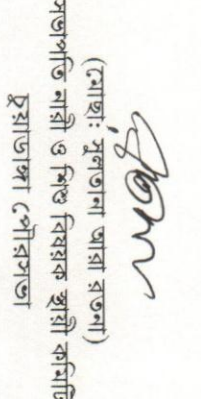 (মোছাঃ সুলতানা আরা রত্না)
সভাপতি নারী ও শিশু বিষয়ক স্থায়ী কমিটি
চুয়াডাঙ্গা পৌরসভা